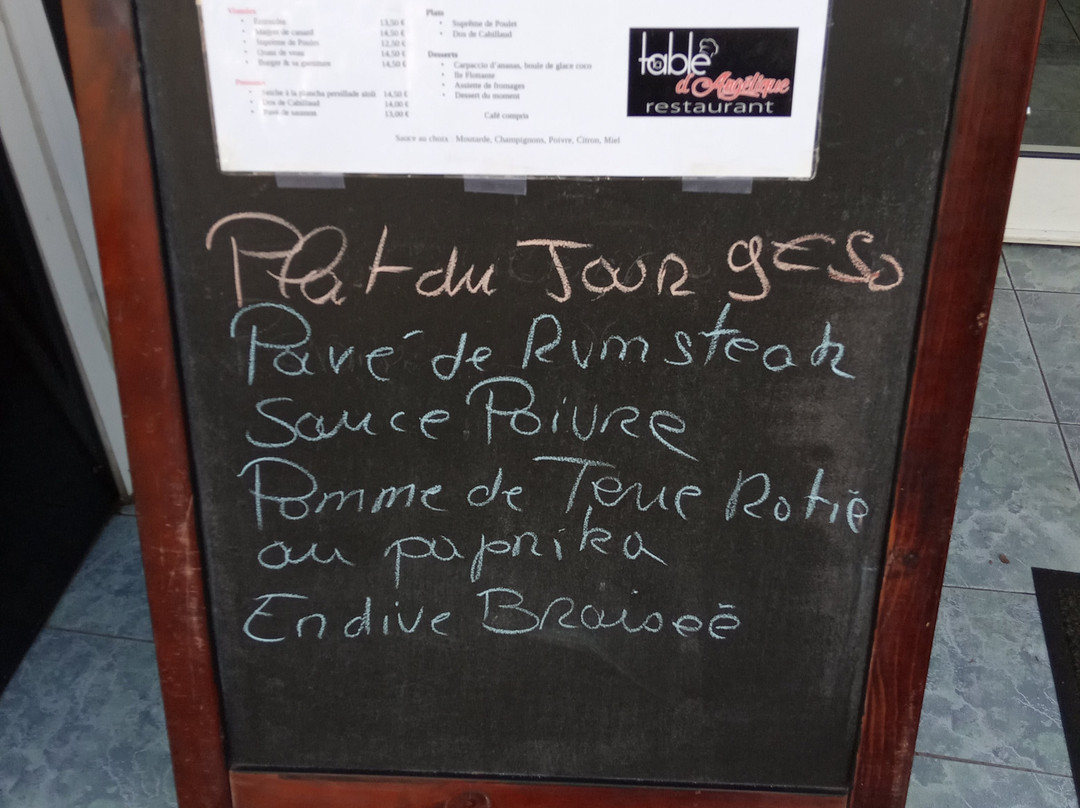 Viandes
13,50 €
Magret de canard 14,50 €
Suprême de Poulet 12,50 €
Quasi de veau 14,50 €
Burger & sa garniture 14,50 €
à la plancha persillade aïoli 14,50 €
Dos de Cabillaud 14,00 €
Pavé de saumon 13,00 €
Plats
Suprême de Poulet
Dos de Cabillaud
Desserts
Carpaccio d'ananas, boule de glace coco
Ile Flottante
Assiette de fromages
Dessert du moment
Café compris
Sauce au choix : Moutarde, Champignons, Poivre, Citron, Miel
table
d'Angélique
restaurant
Plat du Jour 9€50
Pavé de Rumsteak
Sauce Poivre
Pomme de Terre Rotie
au paprika
Endive Braisée